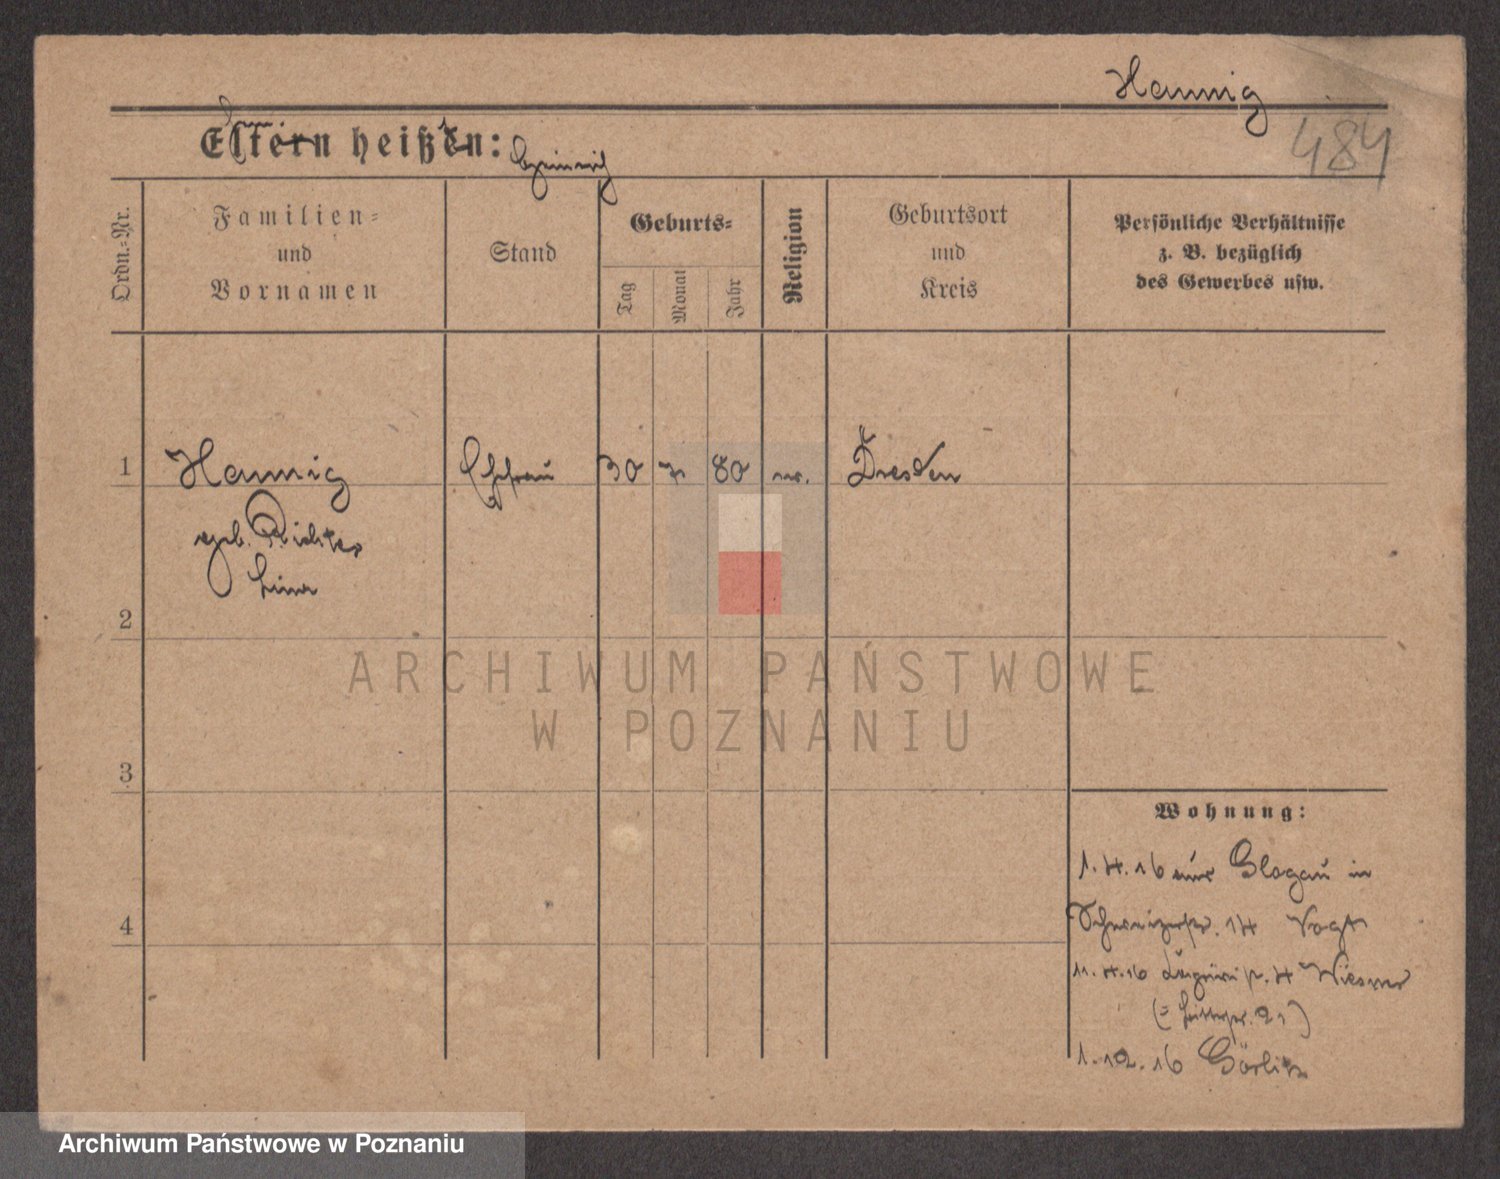 Hannig
484
Eltern heißen:
Ordn.-Nr.
Familien-
und
Vornamen
Stand
Geburts-
Tag
Monat
Jahr
Religion
Geburtsort
und
Kreis
Persönliche Verhältnisse
z. B. bezüglich
des Gewerbes usw.
1 Hannig Ehefrau 30 7. 80 Dresden
geb. Richter
Lina
2
ARCHIWUM PAŃSTWOWE
W POZNANIU
3
Wohnung:
1.4.16 aus Glogau in
14 Vogt
4
11.4.16 4 Wiesner
21)
1.12.16 Görlitz
Archiwum Państwowe w Poznaniu